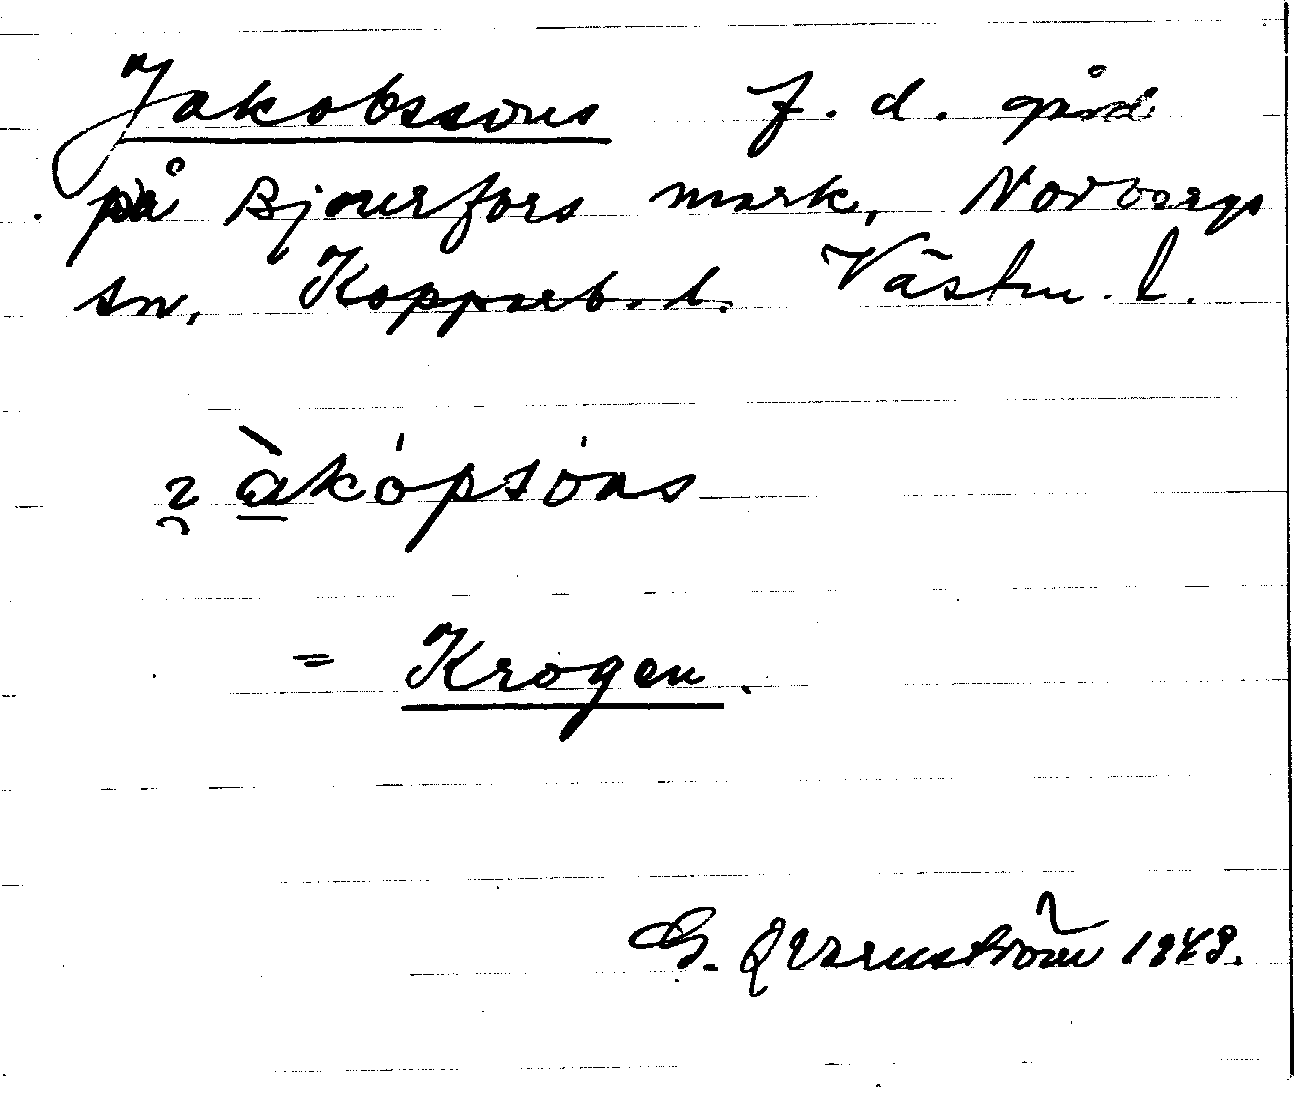 Jakobssons f. d. gård
på Bjurfors mark, Norbergs
sn, Kopparb. l. Västm. l.
àkópsóns
= Krogen.
G. Qvarnström 1949.